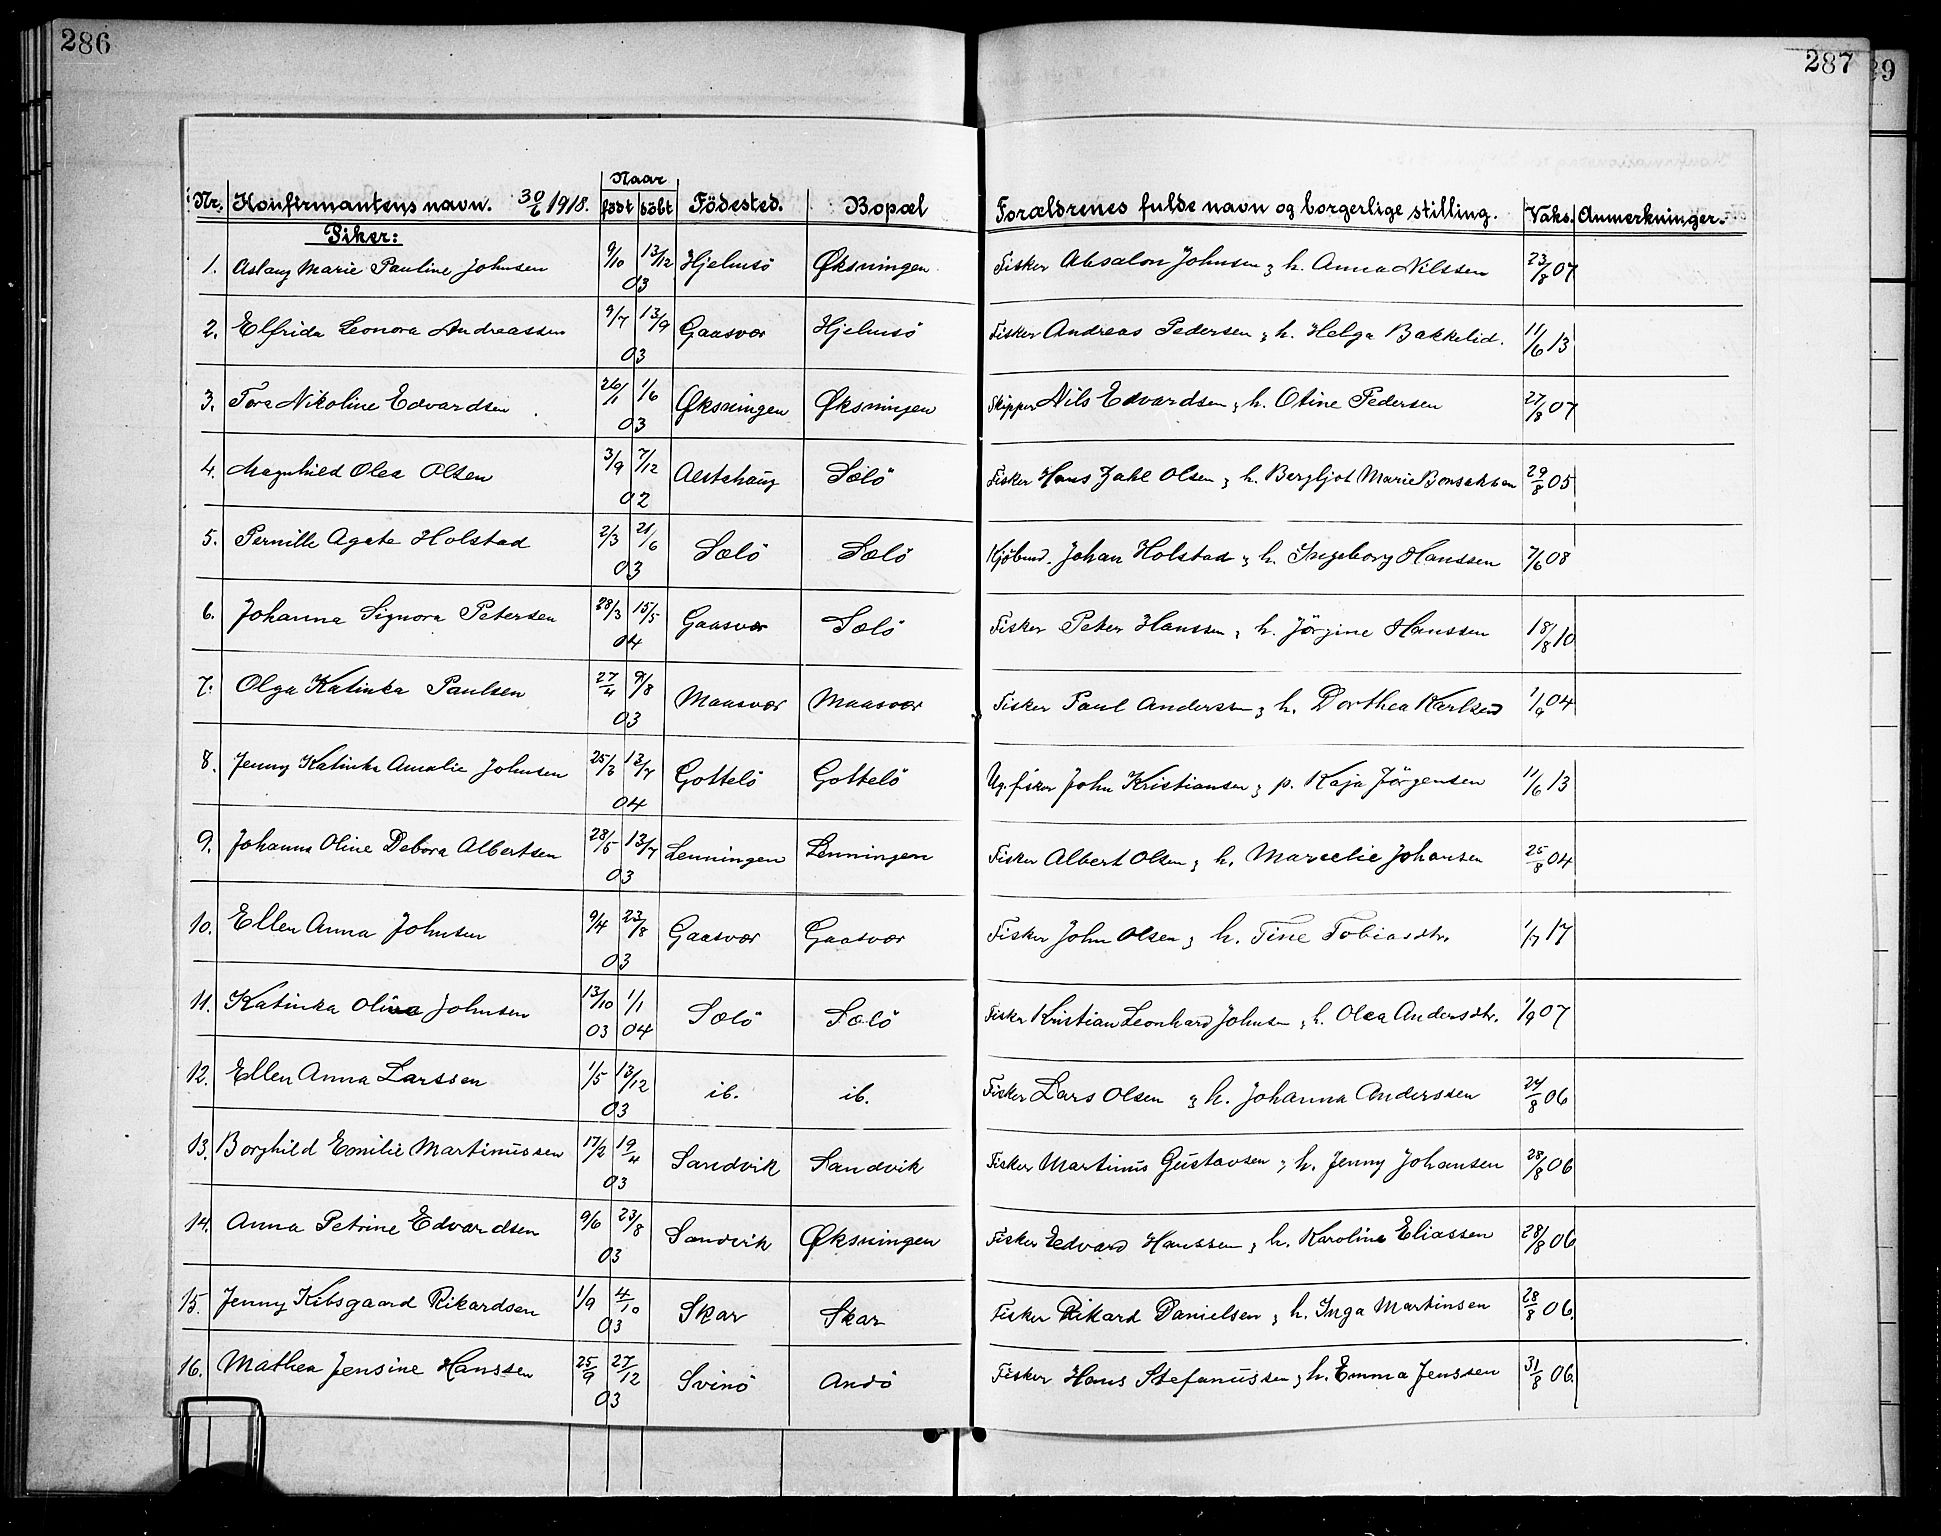 286
287
29
Naar
Nr. Konfirmantens navn. 30/6 1918. födt döbt Födested. Bopæl Forældrenes fulde navn og borgerlige stilling. Vaks. Anmerkninger.
Piker:
1. Aslaug Marie Pauline Johnsen 9/10 13/12 03 Hjelmsö Øksningen. Fisker Absalon Johnsen & h. Anna Nilssen 23/8 07
2. Elfrida Leonora Andreassen 9/7 13/9 03 Gaasvær Hjelmsö Fisker Andreas Pedersen & h. Helga Bakkelid. 11/6 13
3. Tora Nikoline Edvardsen 26/1 1/6 03 Øksningen Øksningen Skipper Nils Edvardsen & h. Otine Pedersen 27/8 07
4. Magnhild Olea Olsen 3/9 7/12 02 Alstahaug Sælö Fisker Hans Zahl Olsen & h. Bergljot Marie Bonsaksen 29/8 05
5. Pernille Agate Holstad 2/3 21/6 03 Sælö Sælö Kjöbmd. Johan Holstad & h. Ingeborg Hanssen 7/6 08
6. Johanna Signora Petersen 28/3 15/5 04 Gaasvær Sælö Fisker Peter Hanssen & h. Jörgine Hanssen 18/8 10
7. Olga Katinka Paulsen 27/4 9/8 03 Maasvær Maasvær Fisker Paul Anderssen & h. Dorthea Karlsen 1/9 04
8. Jenny Katinka Amalie Johnsen 25/3 13/7 04 Gottelö Gottelö Ug. fisker John Kristiansen & p. Kaja Jörgensen 11/6 13
9. Johanna Oline Debora Albertsen 28/5 13/7 03 Lenningen Lenningen Fisker Albert Olsen & h. Marselie Johansen 25/8 04
10. Ellen Anna Johnsen 9/4 23/8 03 Gaasvær Gaasvær Fisker John Olsen & h. Tine Tobiasdtr. 1/7 17
11. Katinka Oliva Johnsen 13/10 03 1/1 04 Sælö Sælö Fisker Kristian Leonhard Johnsen & h. Olea Andersdtr. 1/9 07
12. Ellen Anna Larssen 1/5 13/12 03 ib. ib. Fisker Lars Olsen & h. Johanna Anderssen 24/8 06
13. Borghild Emilie Martinussen 17/2 19/4 03 Sandvik Sandvik Fisker Martinus Gustavsen & h. Jenny Johansen 28/8 06
14. Anna Petrine Edvardsen 9/6 23/8 03 Sandvik Øksningen Fisker Eedvard Hanssen & h. Karoline Eliassen 28/8 06
15. Jenny Kibsgaard Rikardsen 1/9 4/10 03 Skar Skar Fisker Rikard Danielsen & h. Inga Martinsen 28/8 06.
16. Mathea Jensine Hanssen 25/9 27/12 03 Svinö Andö Fisker Hans Stefanussen & h. Emma Jenssen 31/8 06.